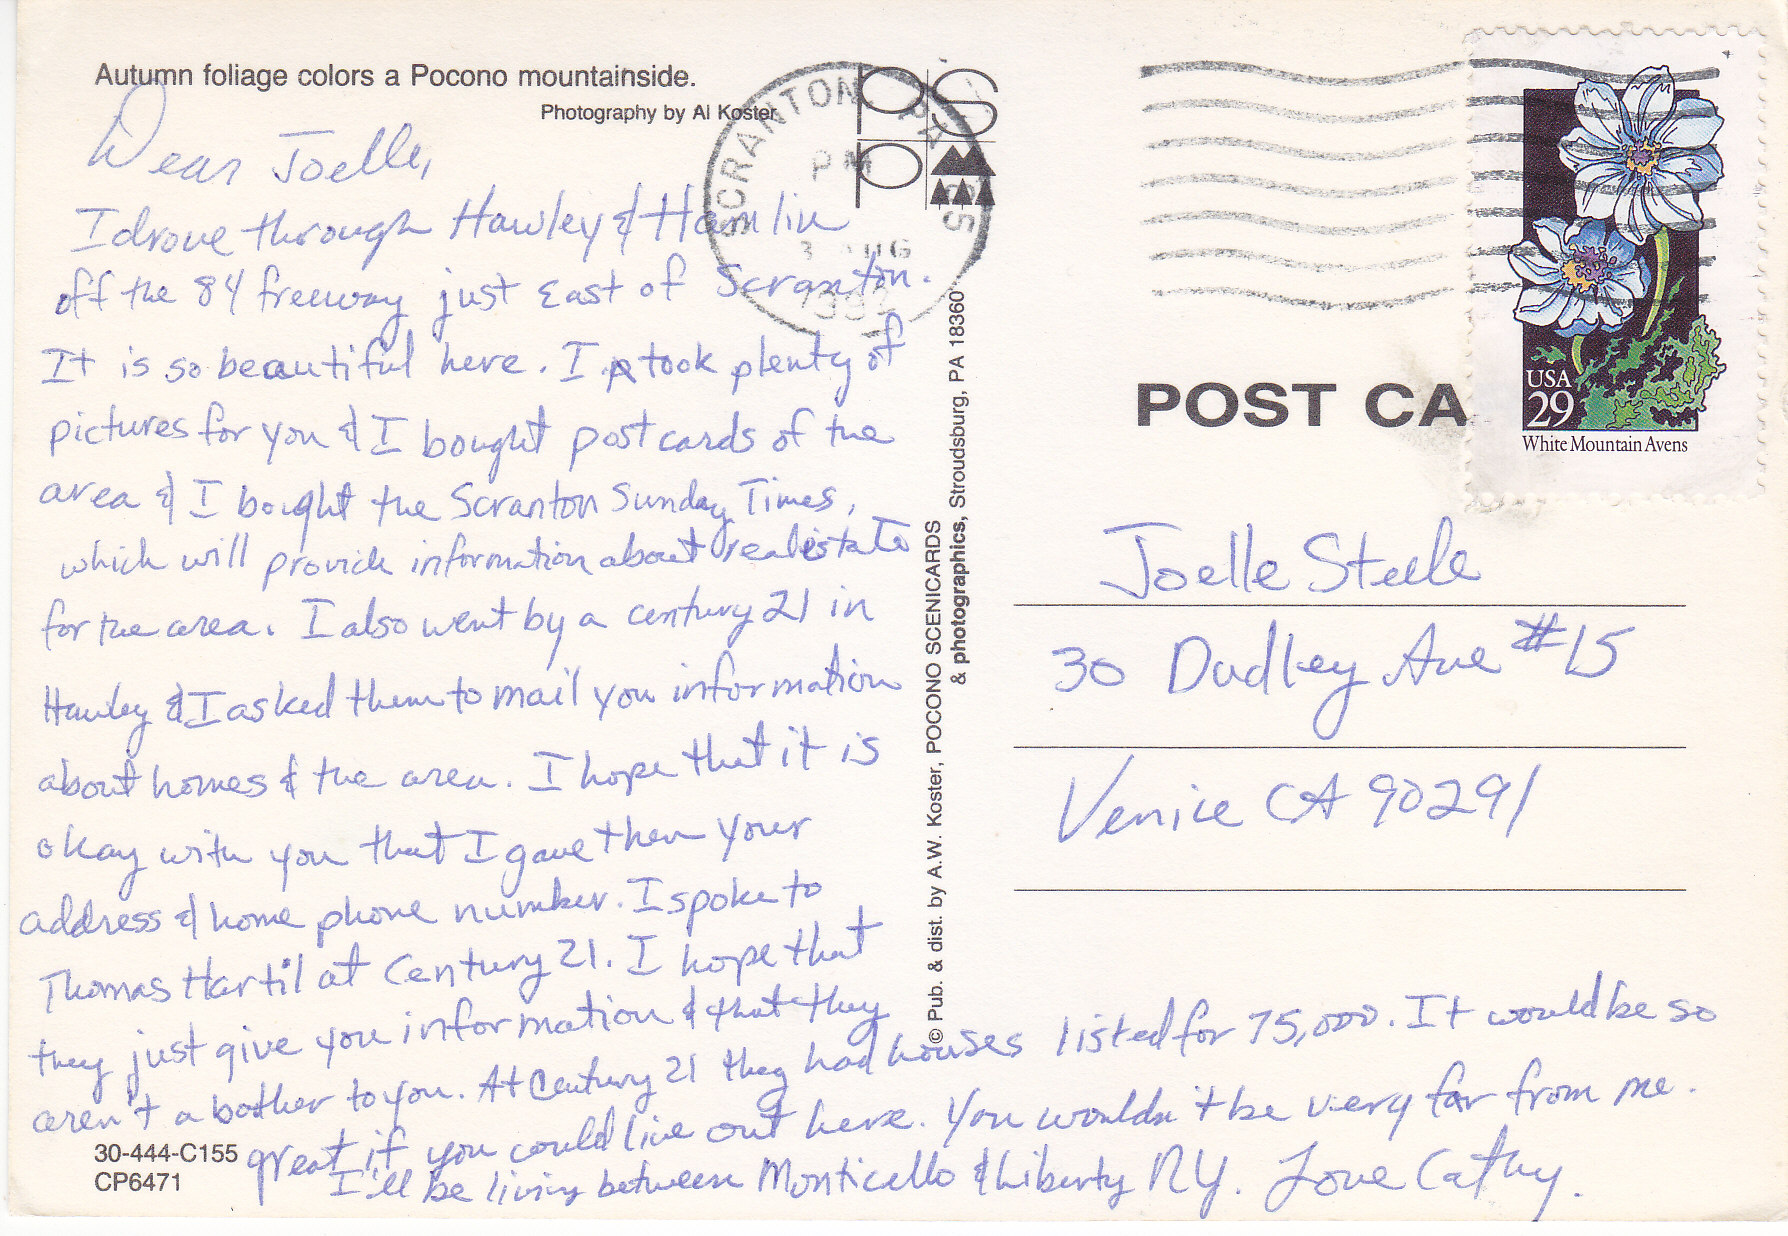 Autumn foliage colors a Pocono mountainside.
Photography by Al Koster
Dear Joelle,
I drove through Hawley & Hamlin
off the 84 freeway just East of Scranton.
It is so beautiful here. I took plenty of
pictures for you & I bought post cards of the
area & I bought the Scranton Sunday Times,
which will provide information about real estate
for the area. I also went by a century 21 in
Hawley & I asked them to mail you information
about homes & the area. I hope that it is
okay with you that I gave them your
address & home phone number. I spoke to
Thomas Hartil at Century 21. I hope that
they just give you information & that they
aren't a bother to you. At Century 21 they had houses listed for 75,000. It would be so
great if you could live out here. You wouldn't be very far from me.
I'll be living between Monticello & Liberty NY. Love Cathy.
30-444-C155
CP6471
© Pub. & dist. by A.W. Koster, POCONO SCENICARDS
& photographics, Stroudsburg, PA 18360
SCRANTON PA
PM
PSP
POST CA
USA
29
White Mountain Avens
Joelle Steele
30 Dudley Ave #15
Venice CA 90291